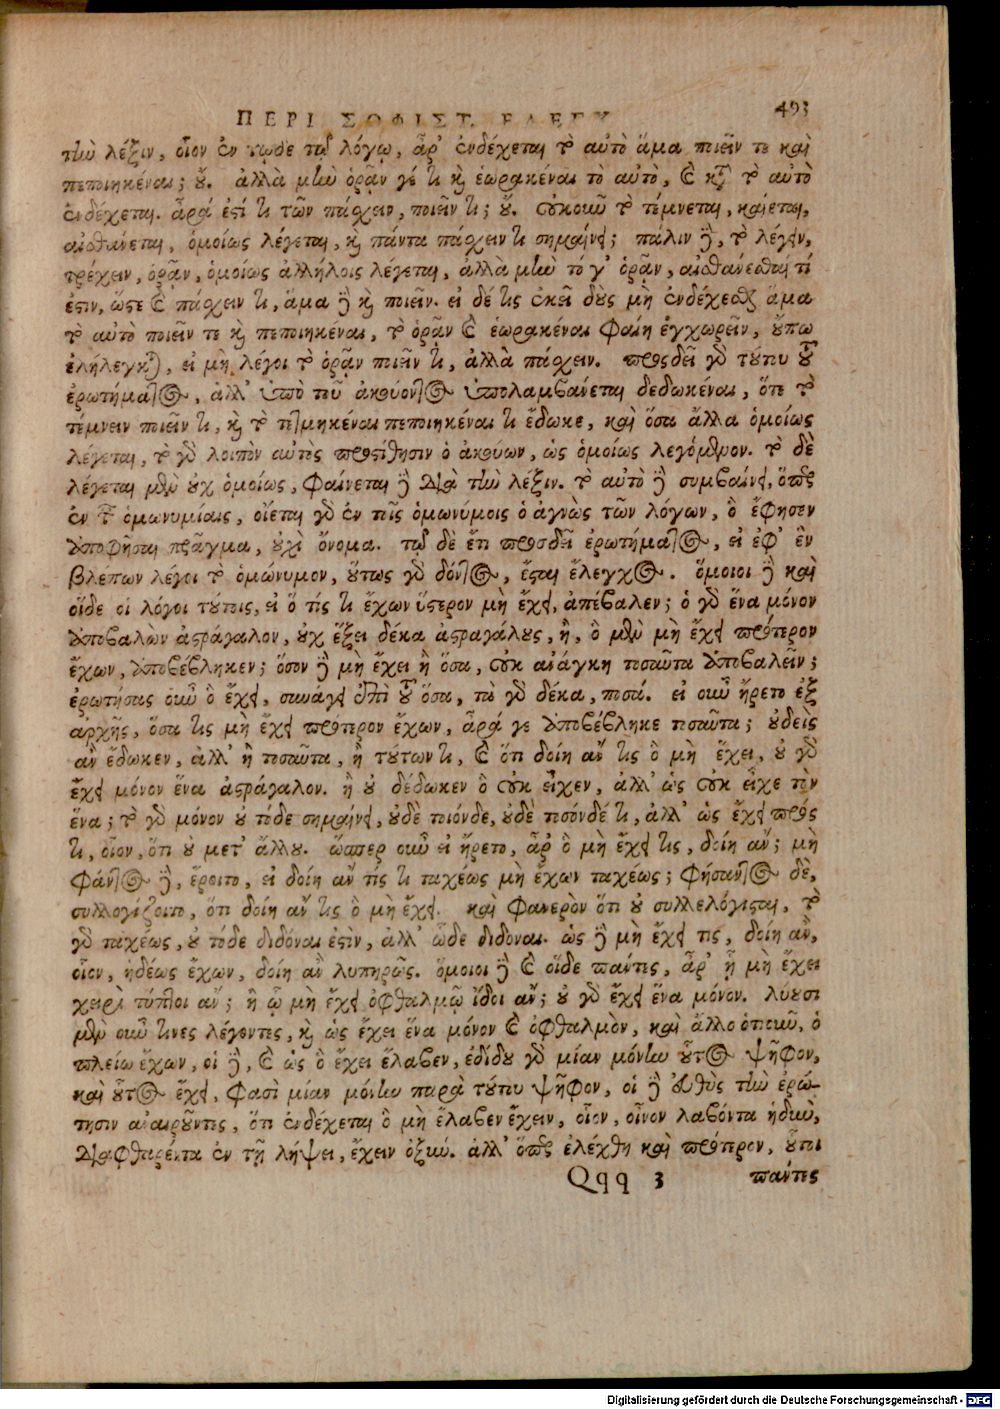 ΠΕΡΙ ΣΟΦΙΣΤ. ΕΛΕΓΧ. 493
τὴν λέξιν, οἷον ἐν τῷδε τῷ λόγῳ, ἆρ' ἐνδέχεται τὸ αὐτὸ ἅμα ποιεῖν τε καὶ
πεποιηκέναι; οὔ. ἀλλὰ μὴν ὁρᾶν γέ τι καὶ ἑωρακέναι τὸ αὐτὸ, καὶ κατὰ τὸ αὐτὸ
ἐνδέχεται. ἆρά ἐστί τι τῶν πάσχειν, ποιεῖν τι; οὔ. οὐκοῦν τὸ τέμνεται, καίεται,
αἰσθάνεται, ὁμοίως λέγεται, καὶ πάντα πάσχειν τι σημαίνει; πάλιν δὲ, τὸ λέγειν,
τρέχειν, ὁρᾶν, ὁμοίως ἀλλήλοις λέγεται, ἀλλὰ μὴν τό γ' ὁρᾶν, αἰσθάνεσθαί τί
ἐστιν, ὥστε καὶ πάσχειν τι, ἅμα δὲ καὶ ποιεῖν. εἰ δέ τις ἐκεῖ δοὺς μὴ ἐνδέχεσθαι ἅμα
τὸ αὐτὸ ποιεῖν τε καὶ πεποιηκέναι, τὸ ὁρᾶν καὶ ἑωρακέναι φαίη ἐγχωρεῖν, οὔπω
ἐλήλεγκται, εἰ μὴ λέγοι τὸ ὁρᾶν ποιεῖν τι, ἀλλὰ πάσχειν. προσδεῖ γὰρ τούτου τοῦ
ἐρωτήματος, ἀλλ' ὑπὸ τοῦ ἀκούοντος ὑπολαμβάνεται δεδωκέναι, ὅτε τὸ
τέμνειν ποιεῖν τι, καὶ τὸ τετμηκέναι πεποιηκέναι τι ἔδωκε, καὶ ὅσα ἄλλα ὁμοίως
λέγεται, τὸ γὰρ λοιπὸν αὐτὸς προστίθησιν ὁ ἀκούων, ὡς ὁμοίως λεγόμενον. τὸ δὲ
λέγεται μὲν οὐχ ὁμοίως, φαίνεται δὲ διὰ τὴν λέξιν. τὸ αὐτὸ δὲ συμβαίνει, ὅπερ
ἐν ταῖς ὁμωνυμίαις, οἴεται γὰρ ἐν τοῖς ὁμωνύμοις ὁ ἀγνὼς τῶν λόγων, ὃ ἔφησεν
ἀποφῆσαι πρᾶγμα, οὐχὶ ὄνομα. τῷ δὲ ἔτι προσδεῖ ἐρωτήματος, εἰ ἐφ' ἓν
βλέπων λέγοι τὸ ὁμώνυμον, οὕτως γὰρ δόντος, ἔσται ἔλεγχος. ὅμοιοι δὲ καὶ
οἵδε οἱ λόγοι τούτοις, εἰ ὅ τίς τι ἔχων ὕστερον μὴ ἔχει, ἀπέβαλεν; ὁ γὰρ ἕνα μόνον
ἀποβαλὼν ἀστράγαλον, οὐχ ἕξει δέκα ἀστραγάλους, ἢ, ὃ μὲν μὴ ἔχει πρότερον
ἔχων, ἀποβέβληκεν; ὅσον δὲ μὴ ἔχει ἢ ὅσα, οὐκ ἀνάγκη τοσαῦτα ἀποβαλεῖν;
ἐρωτήσας οὖν ὃ ἔχει, συνάγει ἐπὶ τοῦ ὅσα, τὰ γὰρ δέκα, ποσά. εἰ οὖν ἤρετο ἐξ
ἀρχῆς, ὅσα τις μὴ ἔχει πρότερον ἔχων, ἆρά γε ἀποβέβληκε τοσαῦτα; οὐδεὶς
ἂν ἔδωκεν, ἀλλ' ἢ τοσαῦτα, ἢ τούτων τι, καὶ ὅτι δοίη ἄν τις ὃ μὴ ἔχει, οὐ γὰρ
ἔχει μόνον ἕνα ἀστράγαλον. ἢ οὐ δέδωκεν ὃ οὐκ εἶχεν, ἀλλ' ὡς οὐκ εἶχε τὸν
ἕνα; τὸ γὰρ μόνον οὐ τόδε σημαίνει, οὐδὲ τοιόνδε, οὐδὲ τοσόνδέ τι, ἀλλ' ὡς ἔχει πρός
τι, οἷον, ὅτι οὐ μετ' ἄλλου. ὥσπερ οὖν εἰ ἤρετο, ἆρ' ὃ μὴ ἔχει τις, δοίη ἄν; μὴ
φάντος δὲ, ἔροιτο, εἰ δοίη ἄν τίς τι ταχέως μὴ ἔχων ταχέως; φήσαντος δὲ,
συλλογίζοιτο, ὅτι δοίη ἄν τις ὃ μὴ ἔχει. καὶ φανερὸν ὅτι οὐ συλλελόγισται, τὸ
γὰρ ταχέως, οὐ τόδε διδόναι ἐστὶν, ἀλλ' ὧδε διδόναι. ὡς δὲ μὴ ἔχει τις, δοίη ἂν,
οἷον, ἡδέως ἔχων, δοίη ἂν λυπηρῶς. ὅμοιοι δὲ καὶ οἵδε πάντες, ἆρ' ᾗ μὴ ἔχει
χειρὶ τύπτοι ἄν; ἢ ᾧ μὴ ἔχει ὀφθαλμῷ ἴδοι ἄν; οὐ γὰρ ἔχει ἕνα μόνον. λύουσι
μὲν οὖν τινες λέγοντες, καὶ ὡς ἔχει ἕνα μόνον καὶ ὀφθαλμὸν, καὶ ἄλλο ὁτιοῦν, ὁ
πλείω ἔχων, οἱ δὲ, καὶ ὡς ὃ ἔχει ἔλαβεν, ἐδίδου γὰρ μίαν μόνην οὗτος ψῆφον,
καὶ οὗτος ἔχει, φασὶ μίαν μόνην παρὰ τούτου ψῆφον, οἱ δὲ εὐθὺς τὴν ἐρώ-
τησιν ἀναιροῦντες, ὅτι ἐνδέχεται ὃ μὴ ἔλαβεν ἔχειν, οἷον, οἶνον λαβόντα ἡδὺν,
διαφθαρέντα ἐν τῇ λήψει, ἔχειν ὀξύν. ἀλλ' ὅπερ ἐλέχθη καὶ πρότερον, οὗτοι
Qqq 3 πάντες
Digitalisierung gefördert durch die Deutsche Forschungsgemeinschaft - DFG